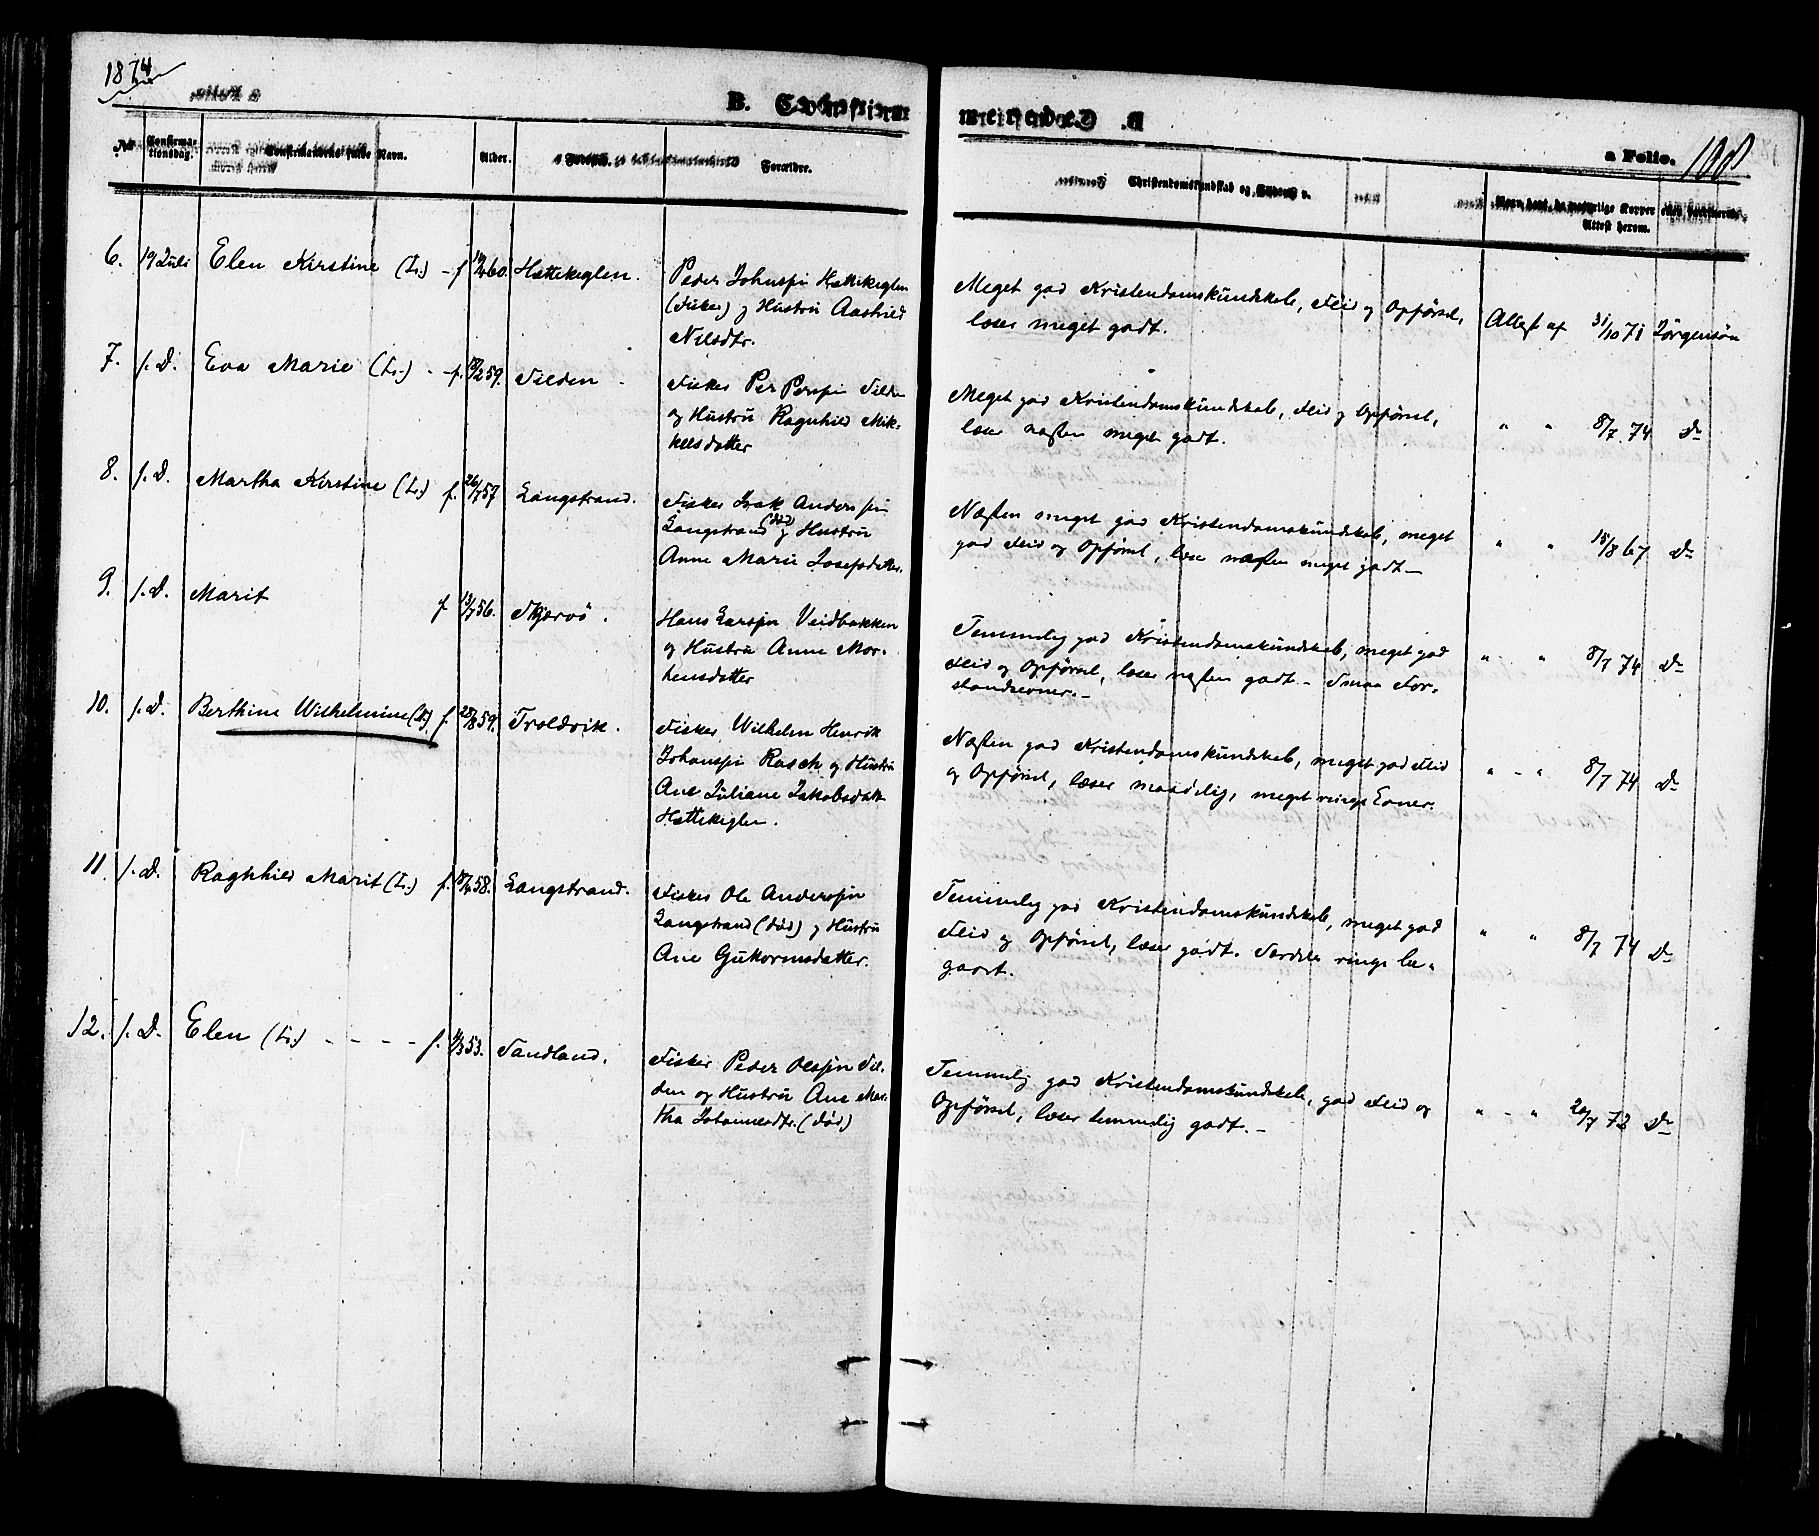 1874
B. Confirm
erede m
a Folio. 188
No.
Confirma-
tionsdag.
Confirmandens fulde Navn.
Alder.
Forældre.
Christendomskundskab og
Attest herom.
6. 19 Juli Elen Kirstine (Lr.) - f 60. Hættekeglen.
Peder Johnssen Hættekeglen
(Fisker) og Hustru Aashild
Nilsdtr.
Meget god Kristendomskundskab, Flid og Opførsel,
læser meget godt.
Attest af 31/10 71 Jørgensøn
7. s. D. Eva Marie (Lr.) - f. 59. Silden
Fisker Per Perssen Silden
og Hustru Ragnhild Mik-
kelsdatter
Meget god Kristendomskundskab, Flid og Opførsel,
læser næsten meget godt.
" " 8/7 74 Do
8. s. D. Martha Kirstine (Lr.) f. 26/7 57 Langstrand.
Fisker Isak Anderssen
Langstrand (død) og Hustru
Anne Marie Josefsdatter.
Næsten meget god Kristendomskundskab, meget
god Flid og Opførsel, læser næsten meget godt -
" " 15/8 67 Do
9. s. D. Marit f 13/7 56. Skjervö.
Hans Larssen Veidbakken
og Hustru Anne Mor-
tensdatter
Temmelig god Kristendomskundskab, meget god
Flid og Opførsel, læser næsten godt - Smaa For-
standsevner. -
" " 8/7 74 Do
10. s. D. Berthine Wilhelmine (Lr.) f. 25/8 59. Troldvik.
Fisker Wilhelm Henrik
Johanssen Rasch og Hustru
Ane Juliane Jakobsdatt
Hættekeglen.
Næsten god Kristendomskundskab, meget god Flid
og Opførsel, læser maadelig, meget ringe Evner.
" - " 8/7 74 Do
11. s. D. Ragnhild Marit (Lr.) f. 58. Langstrand.
Fisker Ole Anderssen
Langstrand (død) og Hustru
Ane Gukormsdatter.
Temmelig god Kristendomskundskab, meget god
Flid og Opførsel, læser godt. Særdeles ringe be-
gavet.
" " 8/7 74 Do
12. s. D. Elen (Lr.) - - - - f. 53. Sandland.
Fisker Peder Olssen Sil-
den og Hustru Ane Mar-
tha Johannesdtr. (død)
Temmelig god Kristendomskundskab, god Flid og
Opførsel, læser temmelig godt. -
" - " 20/7 72 Do